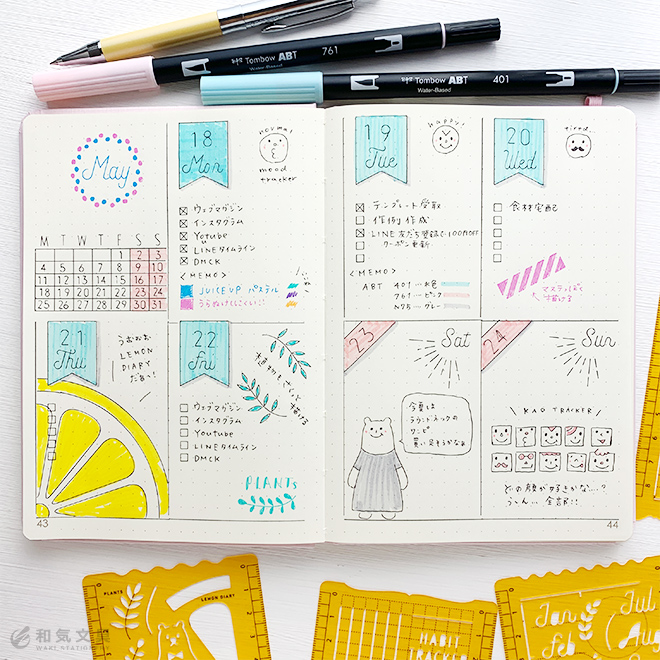 761
Tombow ABT
Water-Based
401
Tombow ABT
Water-Based
May
M T W T F S S
1 2 3
4 5 6 7 8 9 10
11 12 13 14 15 16 17
18 19 20 21 22 23 24
25 26 27 28 29 30 31
18
Mon
normal
mood
tracker
ウェブマガジン
インスタグラム
Yotube
LINEタイムライン
DMCK
<MEMO>
JUICE UP パステル
19
Tue
happy!
テンプレート受取
作例作成
LINE友だち登録で100円OFF
クーポン更新
<MEMO>
ABT 401…水色
761…ピンク
N75…グレー
20
Wed
tired..
食材宅配
マステっぽく
描ける
21
Thu
LEMON
DIARY
だぁ〜!
22
Fri
植物もさくっと描ける
ウェブマガジン
インスタグラム
Youtube
LINEタイムライン
DMCK
PLANTS
43
23
Sat
今夏は
ラウンドネックの
ワンピ
買い足そうかなぁ
24
Sun
KAO TRACKER
どの顔が好きかな…?
う〜ん… 全部!!
44
PLANTS
LEMON DIARY
HABIT
TRACKER
Jan
Feb
Jul
Aug
和気文具
WAKI STATIONERY